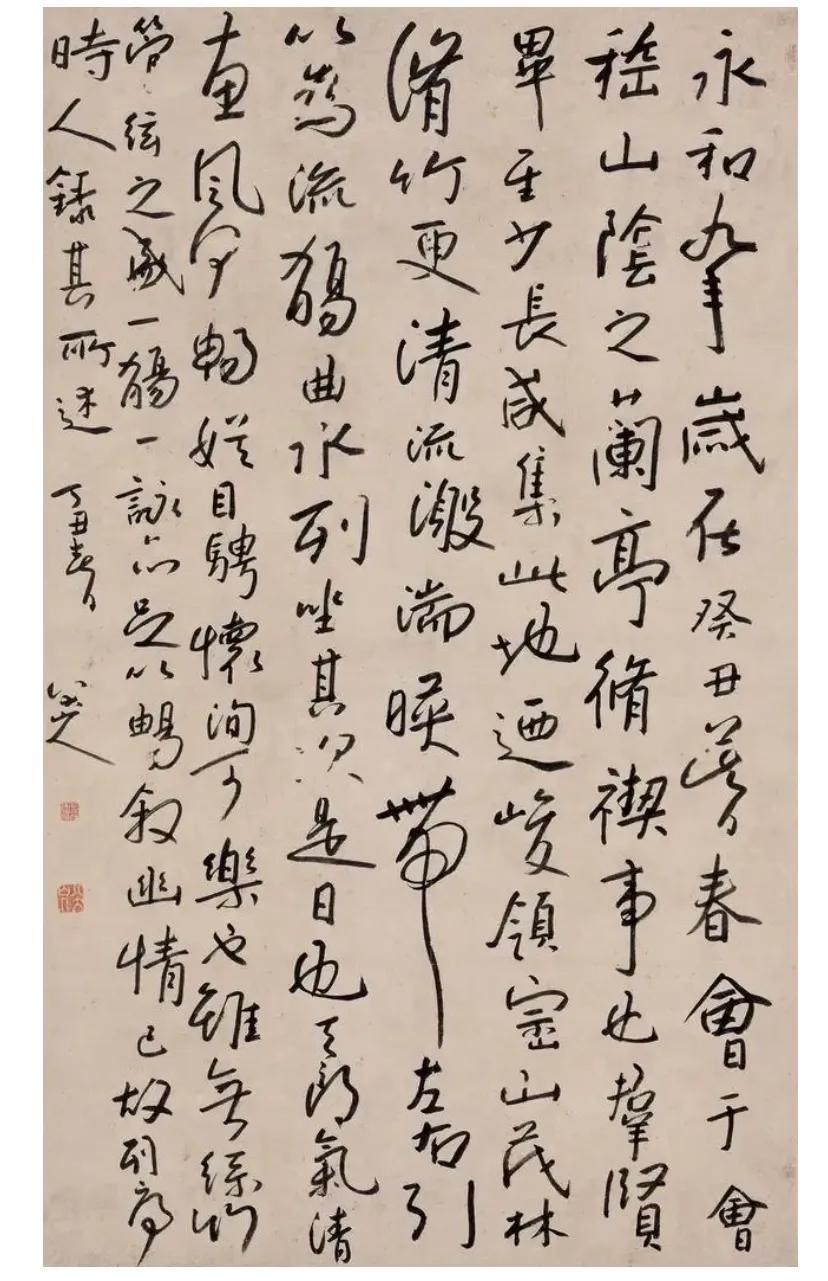 永和九年歲在癸丑暮春會于會
稽山陰之蘭亭脩禊事也羣賢
畢至少長咸集此地迺峻領崇山茂林
脩竹更清流激湍暎帶左右引
以為流觴曲水列坐其次是日也天朗氣清
惠風和暢娛目騁懷洵可樂也雖無絲竹
管絃之盛一觴一詠亦足以暢敘幽情已故列序
時人錄其所述 丁丑春日 八大山人